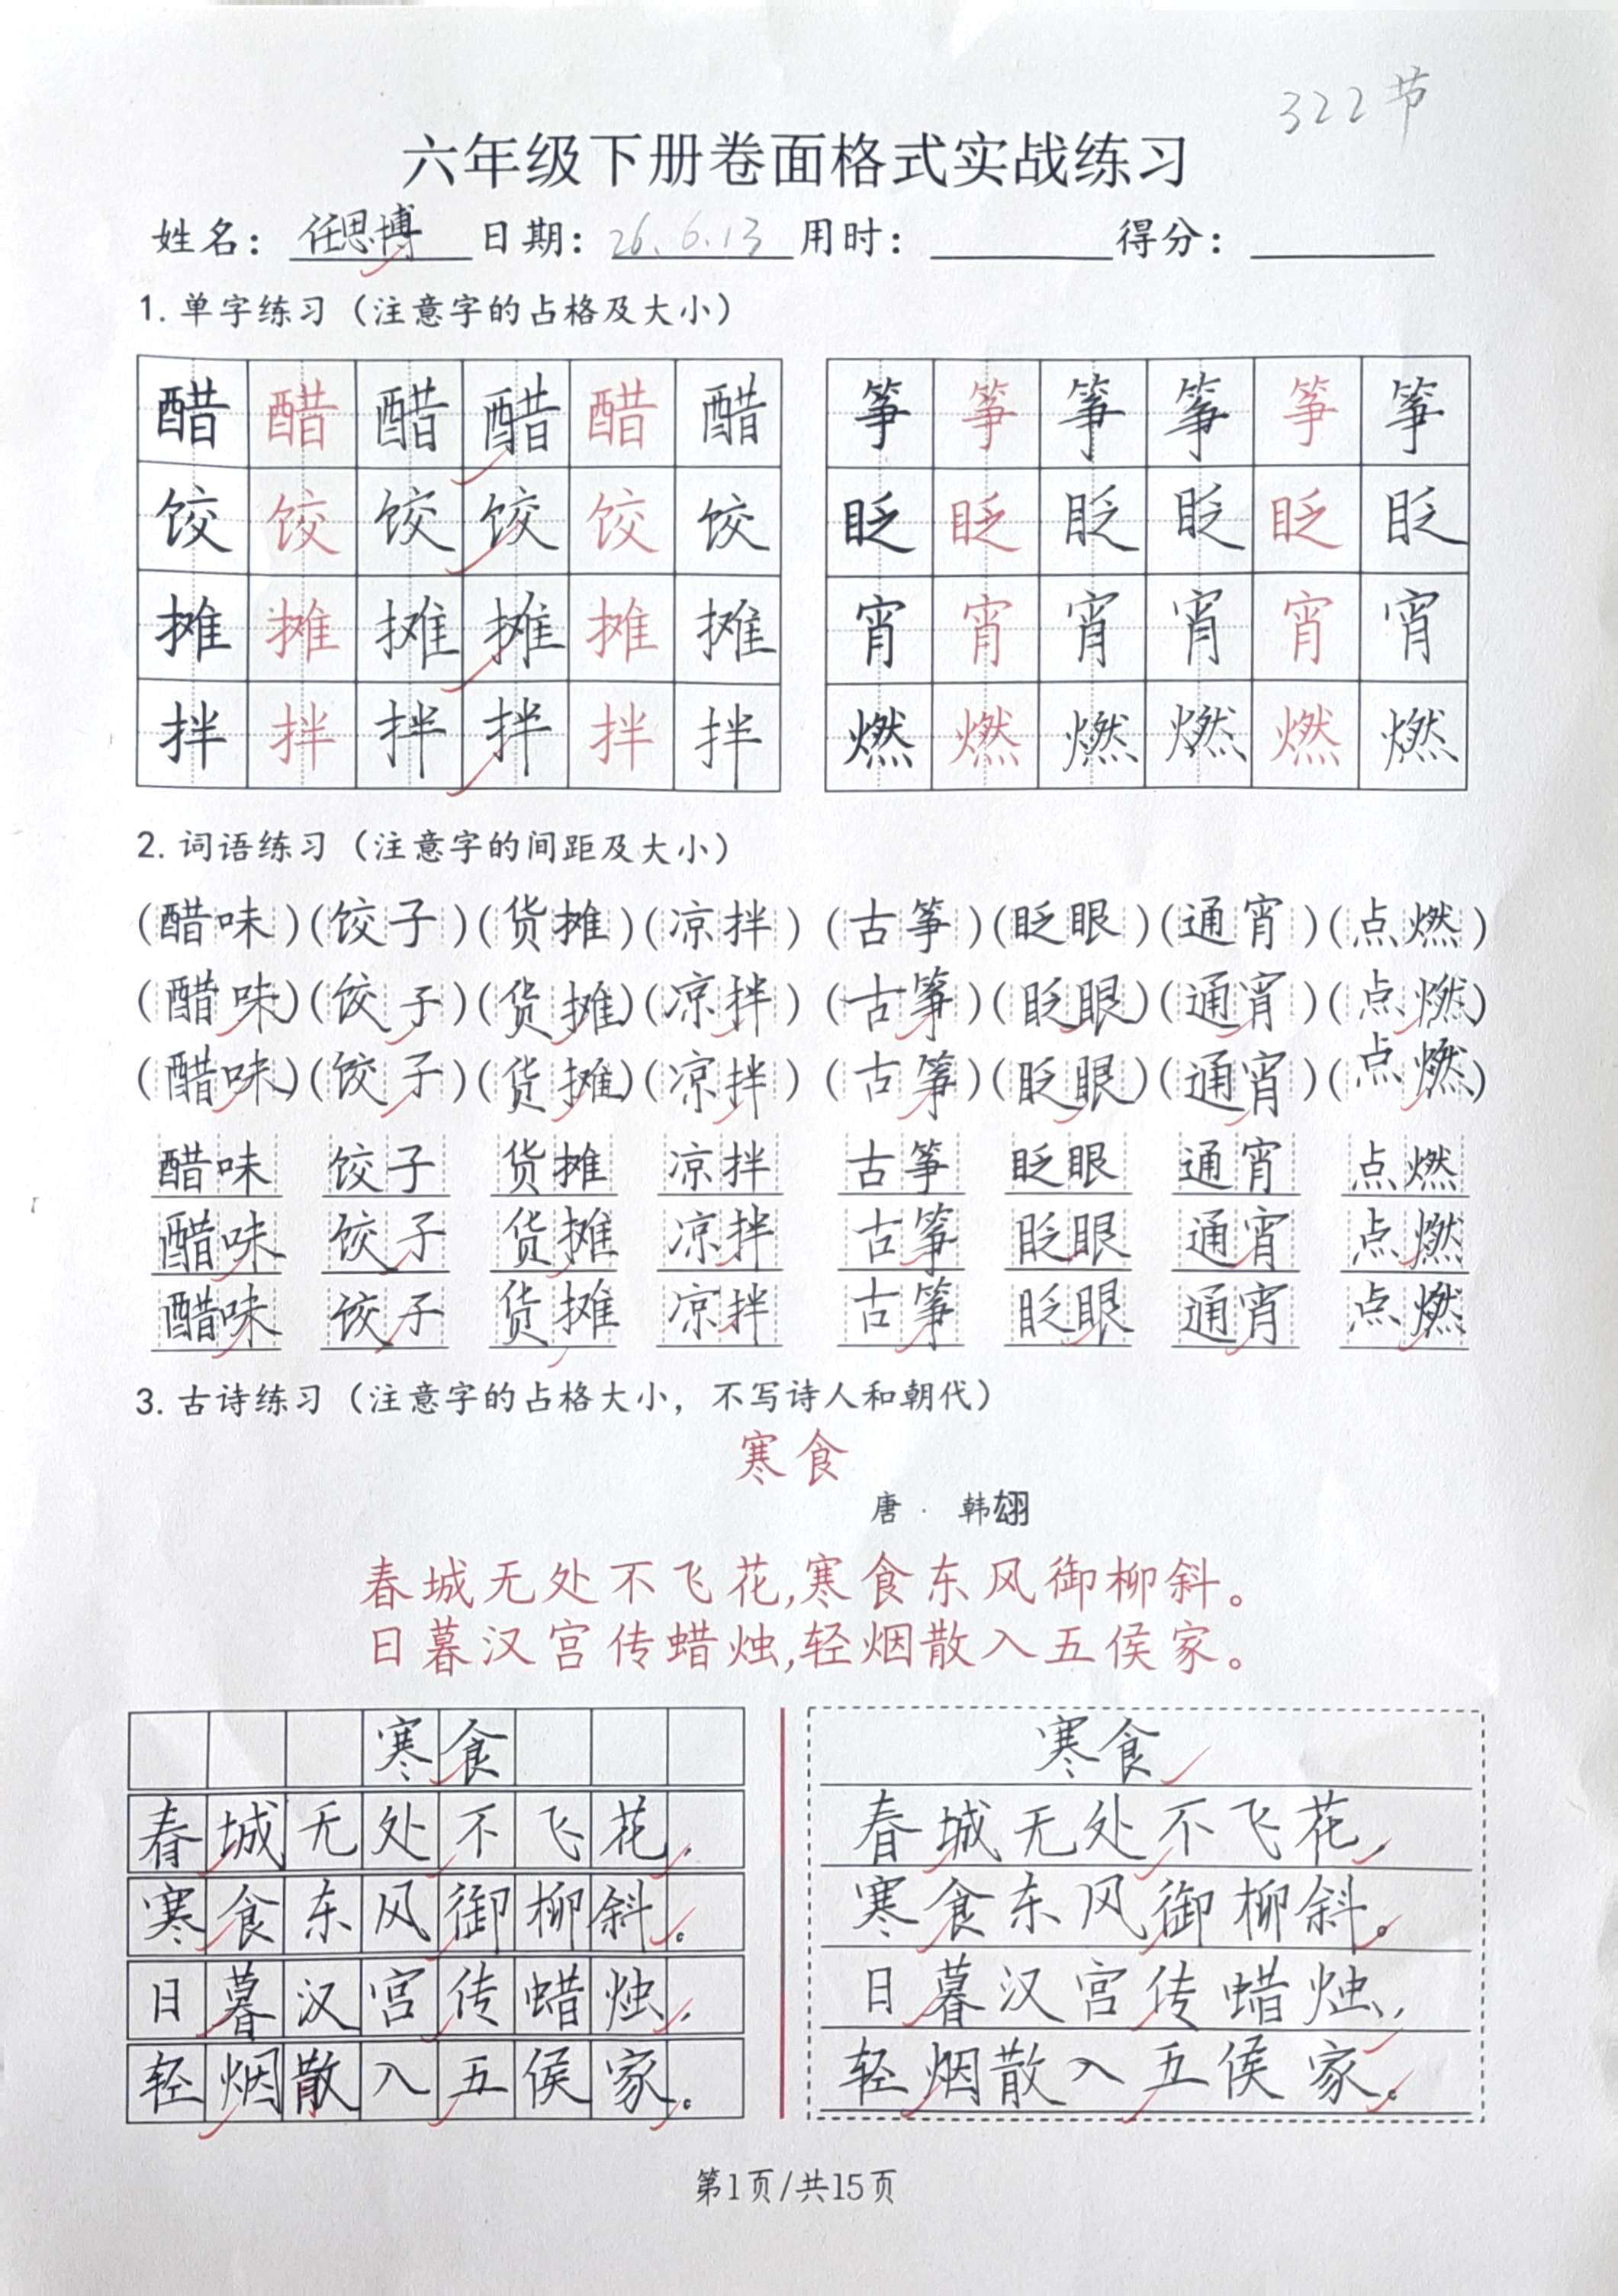 322节
六年级下册卷面格式实战练习
姓名：任思博 日期：26.6.13 用时： 得分：
1.单字练习（注意字的占格及大小）
醋 醋 醋 醋 醋 醋 筝 筝 筝 筝 筝 筝
饺 饺 饺 饺 饺 饺 眨 眨 眨 眨 眨 眨
摊 摊 摊 摊 摊 摊 宵 宵 宵 宵 宵 宵
拌 拌 拌 拌 拌 拌 燃 燃 燃 燃 燃 燃
2.词语练习（注意字的间距及大小）
(醋味)(饺子)(货摊)(凉拌)(古筝)(眨眼)(通宵)(点燃)
(醋味)(饺子)(货摊)(凉拌)(古筝)(眨眼)(通宵)(点燃)
(醋味)(饺子)(货摊)(凉拌)(古筝)(眨眼)(通宵)(点燃)
醋味 饺子 货摊 凉拌 古筝 眨眼 通宵 点燃
醋味 饺子 货摊 凉拌 古筝 眨眼 通宵 点燃
醋味 饺子 货摊 凉拌 古筝 眨眼 通宵 点燃
3.古诗练习（注意字的占格大小，不写诗人和朝代）
寒食
唐· 韩翃
春城无处不飞花,寒食东风御柳斜。
日暮汉宫传蜡烛,轻烟散入五侯家。
寒食
春城无处不飞花，
寒食东风御柳斜。
日暮汉宫传蜡烛，
轻烟散入五侯家。
寒食
春城无处不飞花，
寒食东风御柳斜。
日暮汉宫传蜡烛，
轻烟散入五侯家。
第1页/共15页